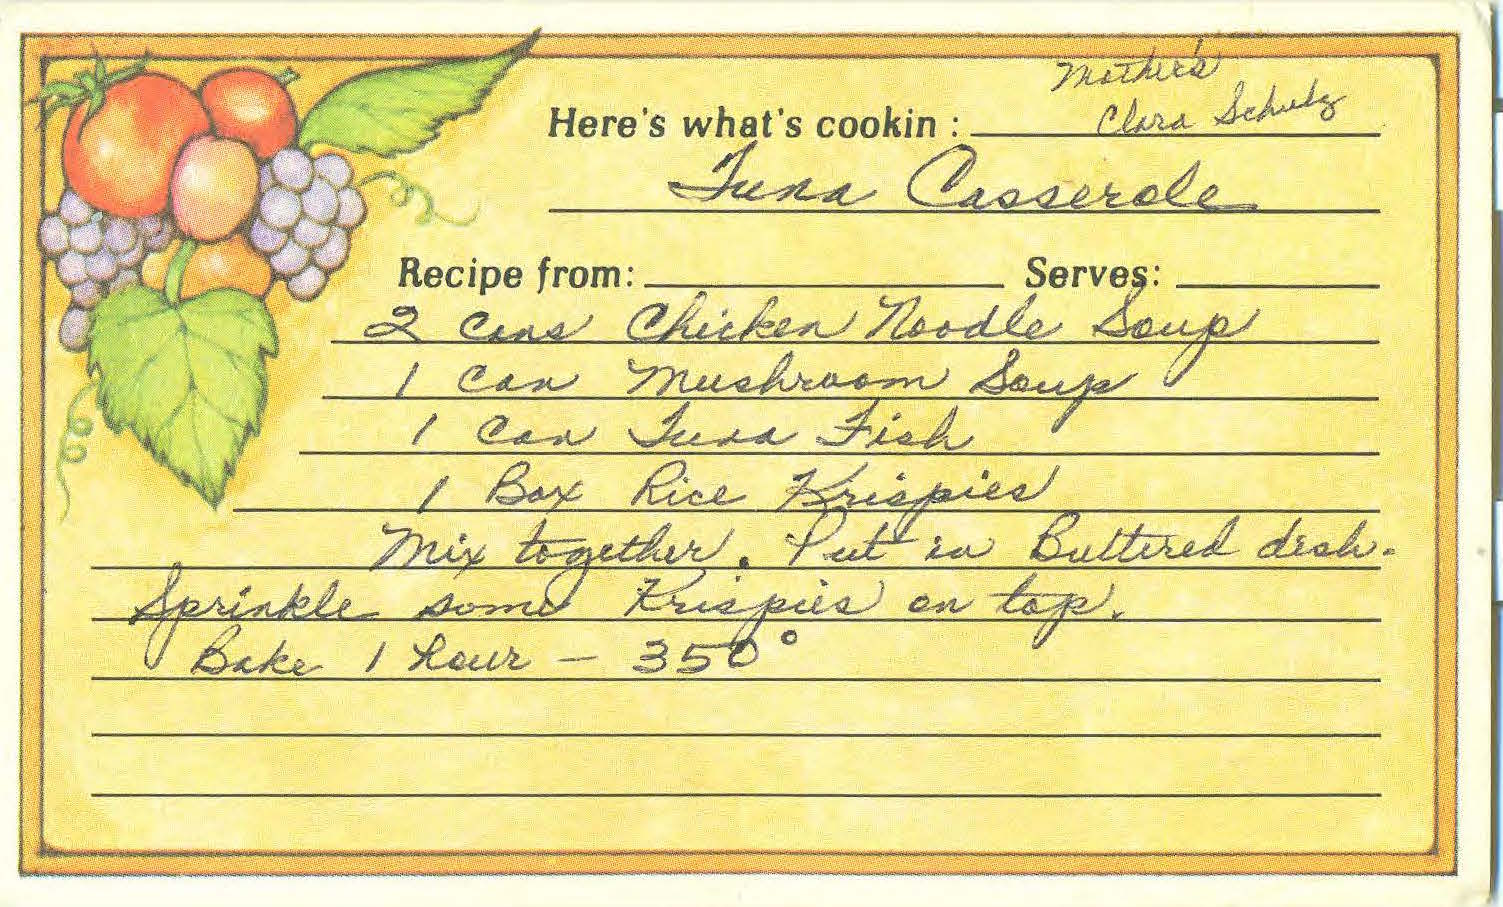 Mother's
Clara Schulz
Here's what's cookin :
Tuna Casserole
Recipe from: Serves:
2 cans Chicken Noodle Soup
1 can Mushroom Soup
1 can Tuna Fish
1 Box Rice Krispies
Mix together. Put in Buttered dish.
Sprinkle some Krispies on top.
Bake 1 hour – 350°